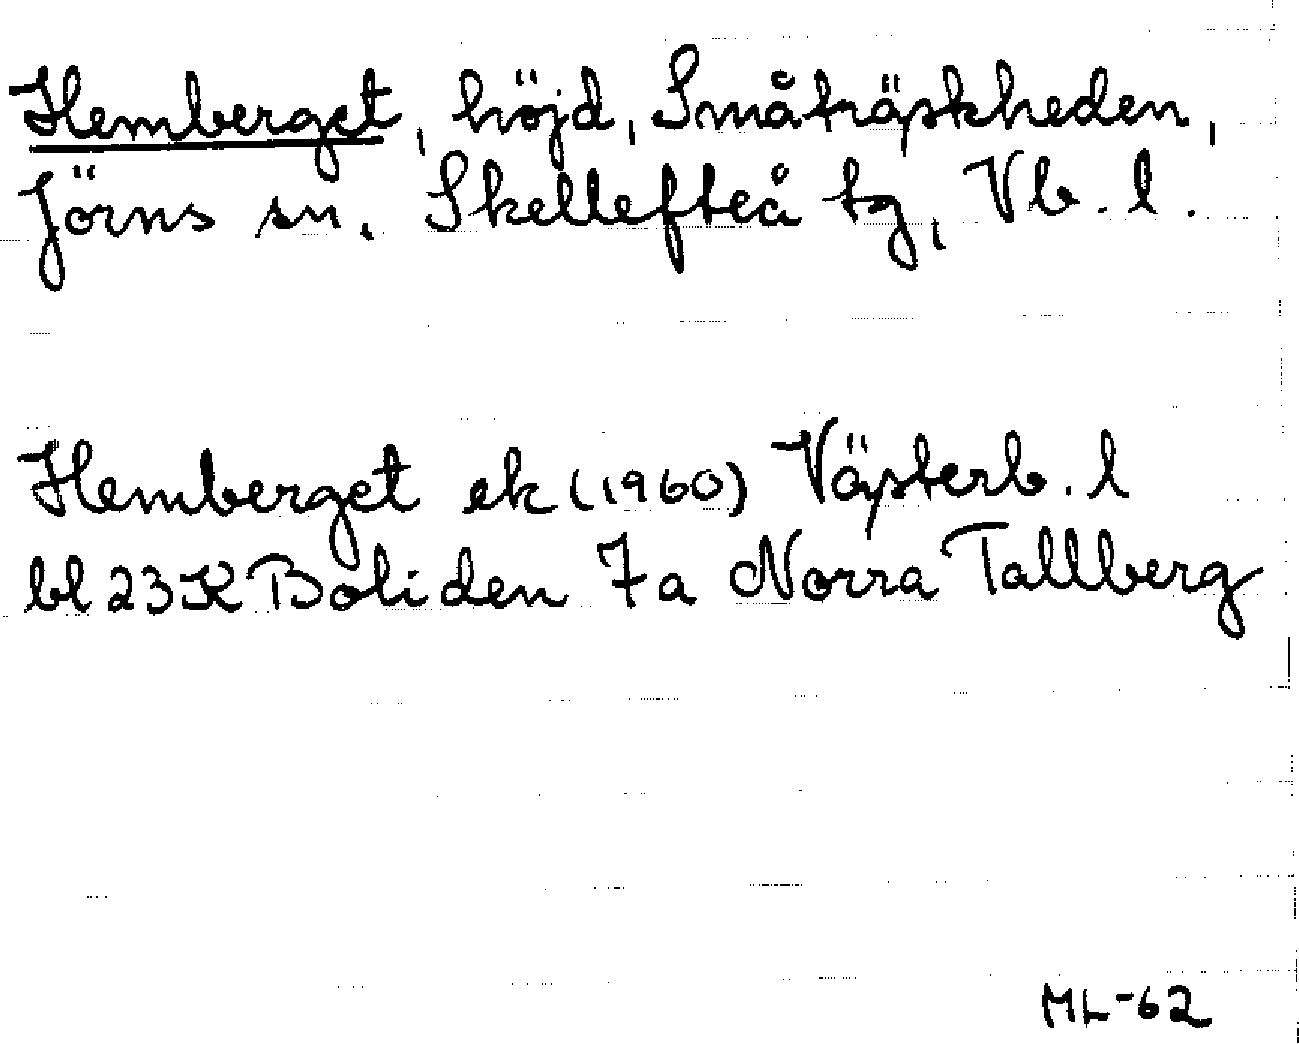 Hemberget, höjd, Småträskheden,
Jörns sn. Skellefteå tg, Vb. l.
Hemberget ek (1960) Västerb. l
bl 23K Boliden 7a Norra Tallberg
ML-62